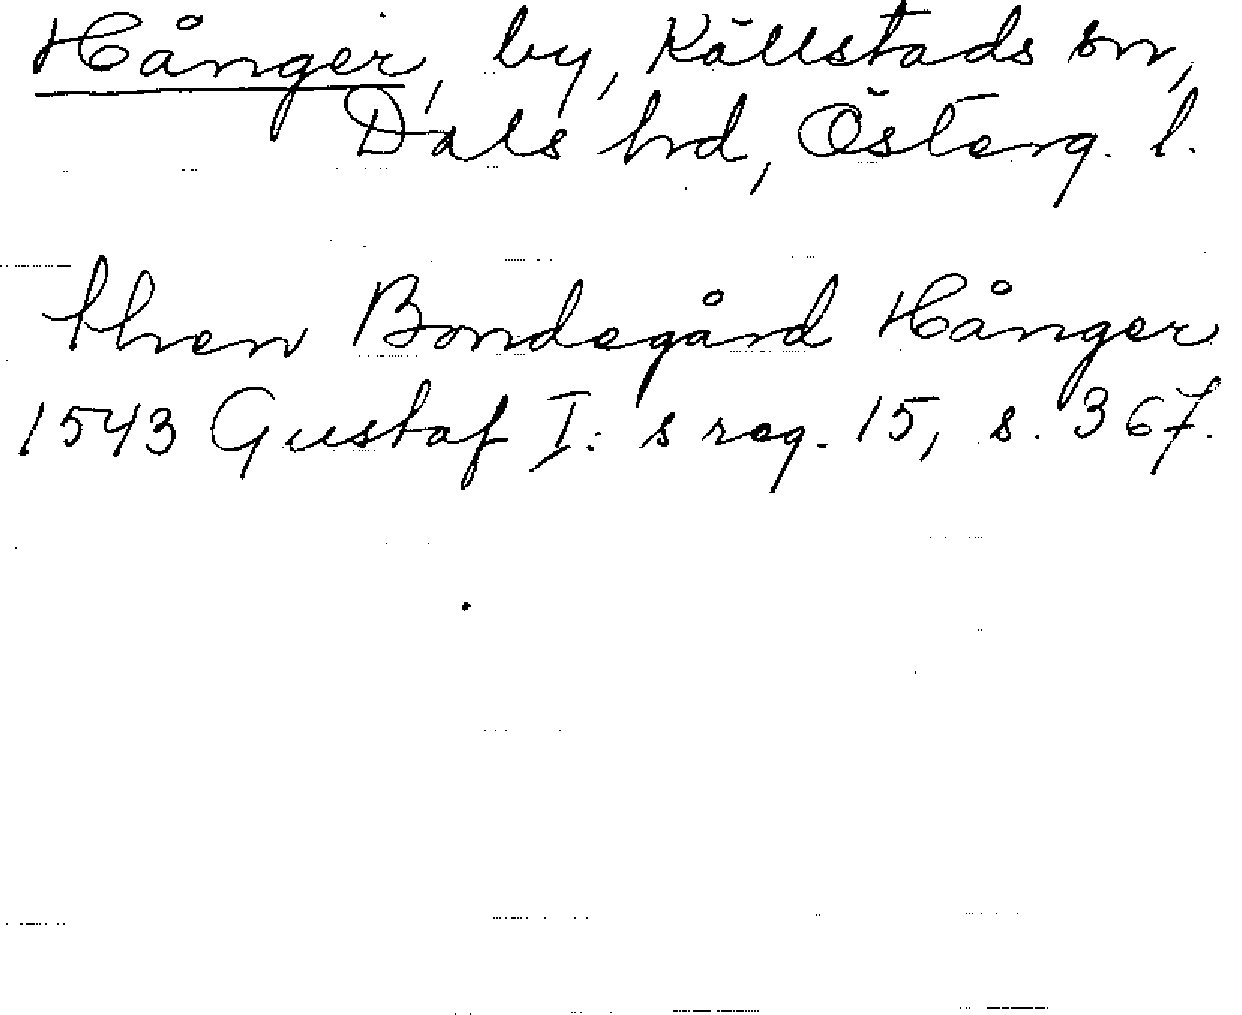 Hånger, by, Källstads sn,
Dals hd, Österg. l.
then Bondegård Hånger
1543 Gustaf I: s reg. 15, s. 367.